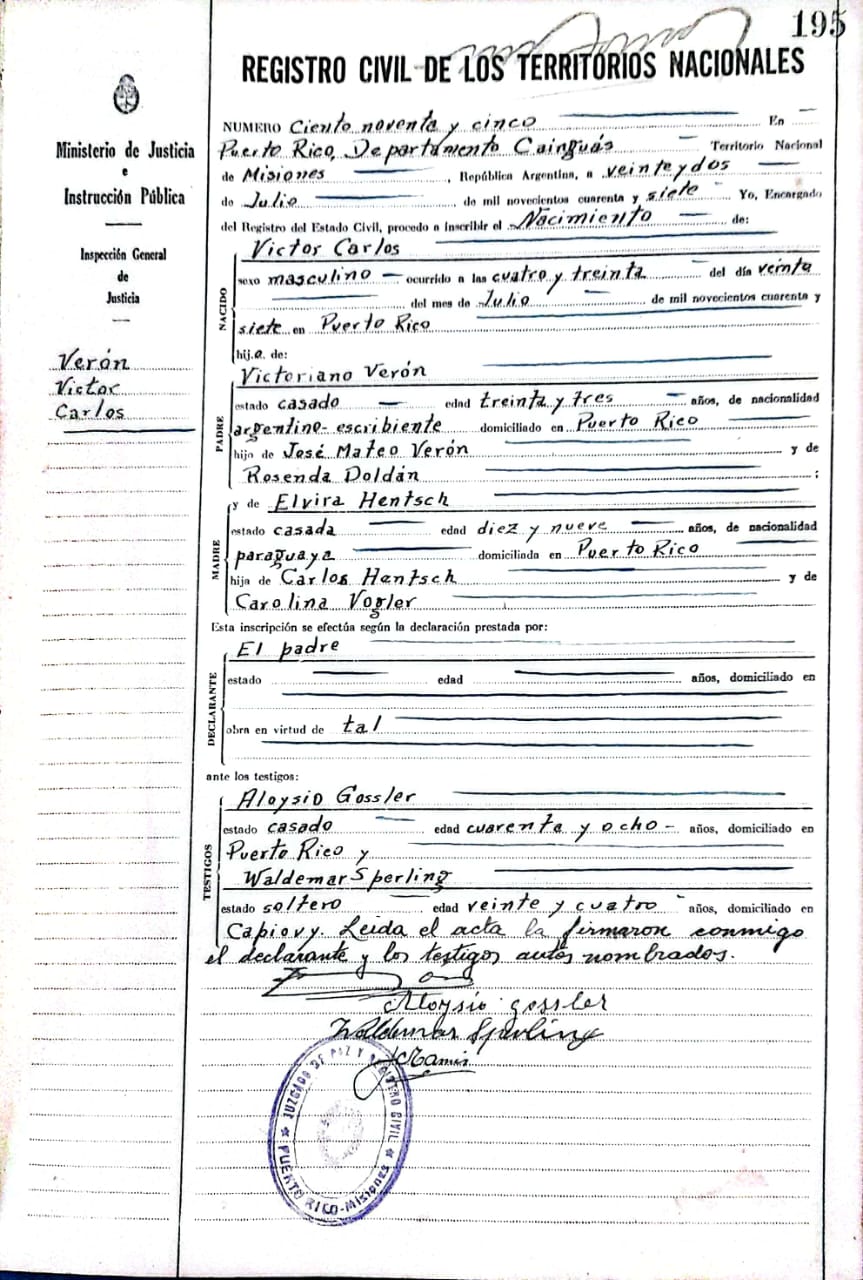 195
REGISTRO CIVIL DE LOS TERRITORIOS NACIONALES
Ministerio de Justicia
e
Instrucción Pública
Inspección General
de
Justicia
Verón
Victor
Carlos
NUMERO Ciento noventa y cinco En
Puerto Rico, Departamento Cainguás Territorio Nacional
de Misiones, República Argentina, a veinte y dos
de Julio de mil novecientos cuarenta y siete Yo, Encargado
del Registro del Estado Civil, procedo a inscribir el Nacimiento de:
NACIDO
Victor Carlos
sexo masculino ocurrido a las cuatro y treinta del día veinta
del mes de Julio de mil novecientos cuarenta y
siete en Puerto Rico
hij.o. de:
PADRE
Victoriano Verón
estado casado edad treinta y tres años, de nacionalidad
argentino-escribiente domiciliado en Puerto Rico
hijo de José Mateo Verón y de
Rosenda Doldán ;
MADRE
y de Elvira Hentsch
estado casada edad diez y nueve años, de nacionalidad
paraguaya domiciliada en Puerto Rico
hija de Carlos Hentsch y de
Carolina Vogler
Esta inscripción se efectúa según la declaración prestada por:
DECLARANTE
El padre
estado edad años, domiciliado en
obra en virtud de tal
ante los testigos:
TESTIGOS
Aloysio Gossler
estado casado edad cuarenta y ocho - años, domiciliado en
Puerto Rico y
Waldemar Sperling
estado soltero edad veinte y cuatro años, domiciliado en
Capiovy. Leida el acta la firmaron conmigo
el declarante y los testigos antes nombrados.
Aloysio gossler
Waldemar Sperling
JUZGADO DE PAZ Y REGISTRO CIVIL
PUERTO RICO - Misiones